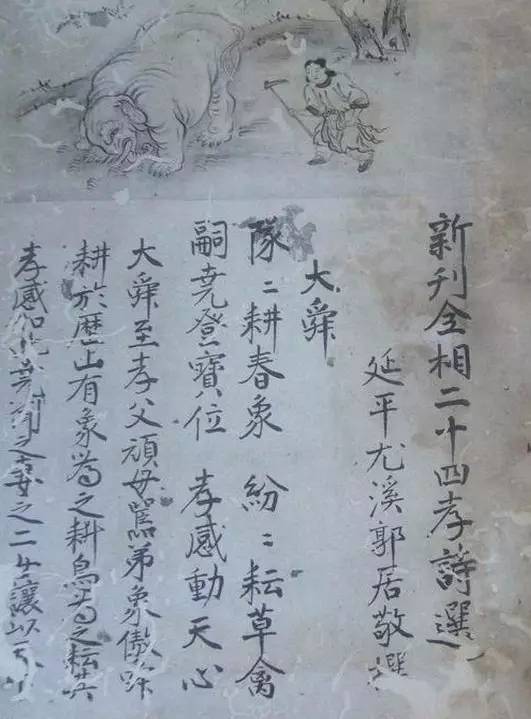 新刊全相二十四孝詩選
延平尤溪郭居敬撰
大舜
隊〻耕春象 紛〻耘草禽
嗣堯登寶位 孝感動天心
大舜至孝父頑母嚚弟象傲舜
耕於歷山有象為之耕鳥為之耘其
孝感如此堯聞之妻之二女讓以天